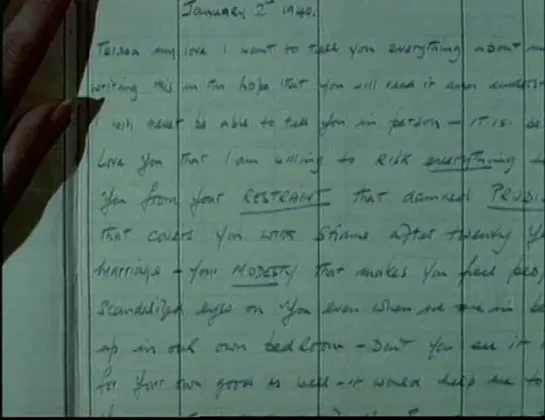 January 2nd 1940.
Teresa my love I want to tell you everything about
writing this in the hope that you will read it and
I will never be able to tell you in person - it is
Love you that I am willing to RISK everything
You from your RESTRAINT that damned
that covers you with shame after twenty
Marriage - Your MODESTY that makes you feel
Scandalized eyes on you even when we are in
up in our own bedroom - Don't you see it
for your own good as well - it would help me to